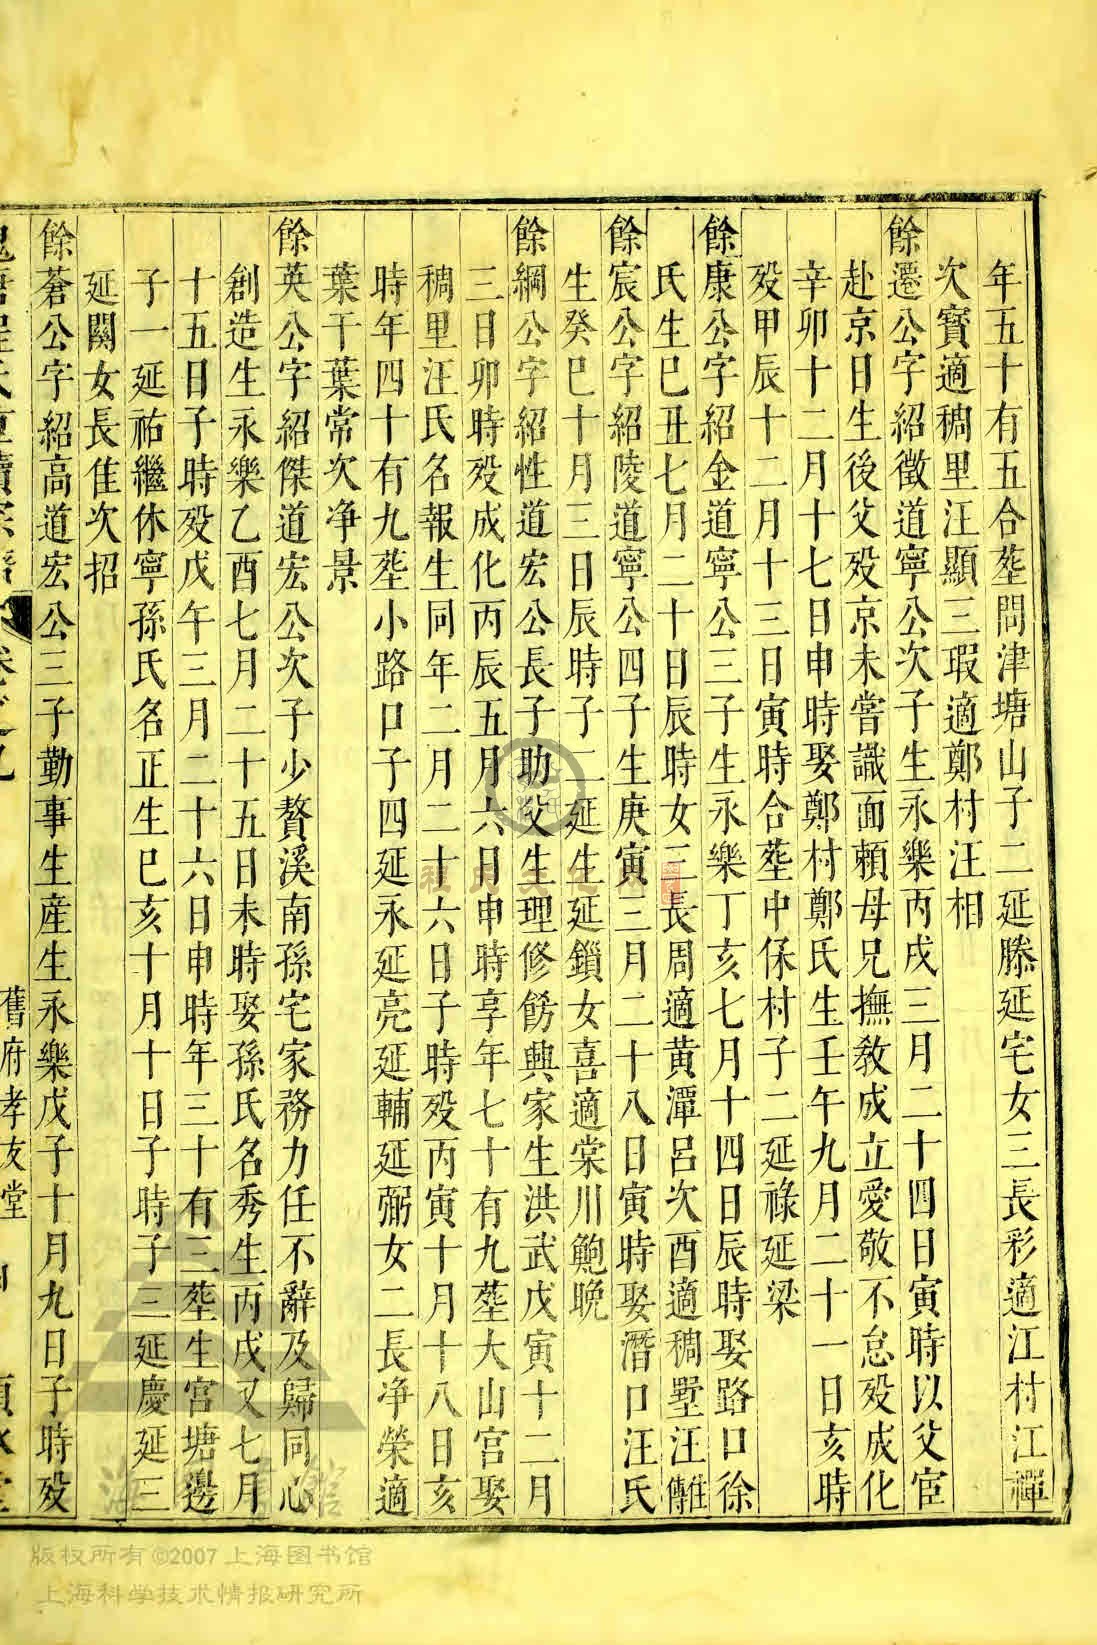 年五十有五合塟問津塘山子二延滕延宅女三長彩適江村江禪
次寳適稠里汪顯三瑕適鄭村汪相
餘遷公字紹徵道寧公次子生永樂丙戌三月二十四日寅時以父宦
赴京日生後父殁京未嘗識面頼母兄撫教成立愛敬不怠殁成化
辛卯十二月十七日申時娶鄭村鄭氏生壬午九月二十一日亥時
殁甲辰十二月十三日寅時合塟中保村子二延祿延梁
餘康公字紹金道寧公三子生永樂丁亥七月十四日辰時娶路口徐
氏生巳丑七月二十日辰時女二長周適黄潭呂次酉適稠墅汪傳
餘宸公字紹陵道寧公四子生庚寅三月二十八日寅時娶潛口汪氏
生癸巳十月三日辰時子二延生延鎖女喜適棠川鮑晚
餘綱公字紹性道宏公長子助父生理修餝興家生洪武戊寅十二月
三日卯時殁成化丙辰五月六日申時享年七十有九塟大山宫娶
稠里汪氏名報生同年二月二十六日子時殁丙寅十月十八日亥
時年四十有九塟小路口子四延永延亮延輔延弼女二長净榮適
葉干葉常次净景
餘英公字紹傑道宏公次子少贅溪南孫宅家務力任不辭及歸同心
創造生永樂乙酉七月二十五日未時娶孫氏名秀生丙戌又七月
十五日子時殁戊午三月二十六日申時年三十有三塟生宫塘邊
子一延祐繼休寧孫氏名正生巳亥十月十日子時子三延慶延三
延關女長隹次招
餘蒼公字紹高道宏公三子勤事生産生永樂戊子十月九日子時殁
舊府孝友堂
程氏文化
版权所有©2007上海图书馆
上海科学技术情报研究所